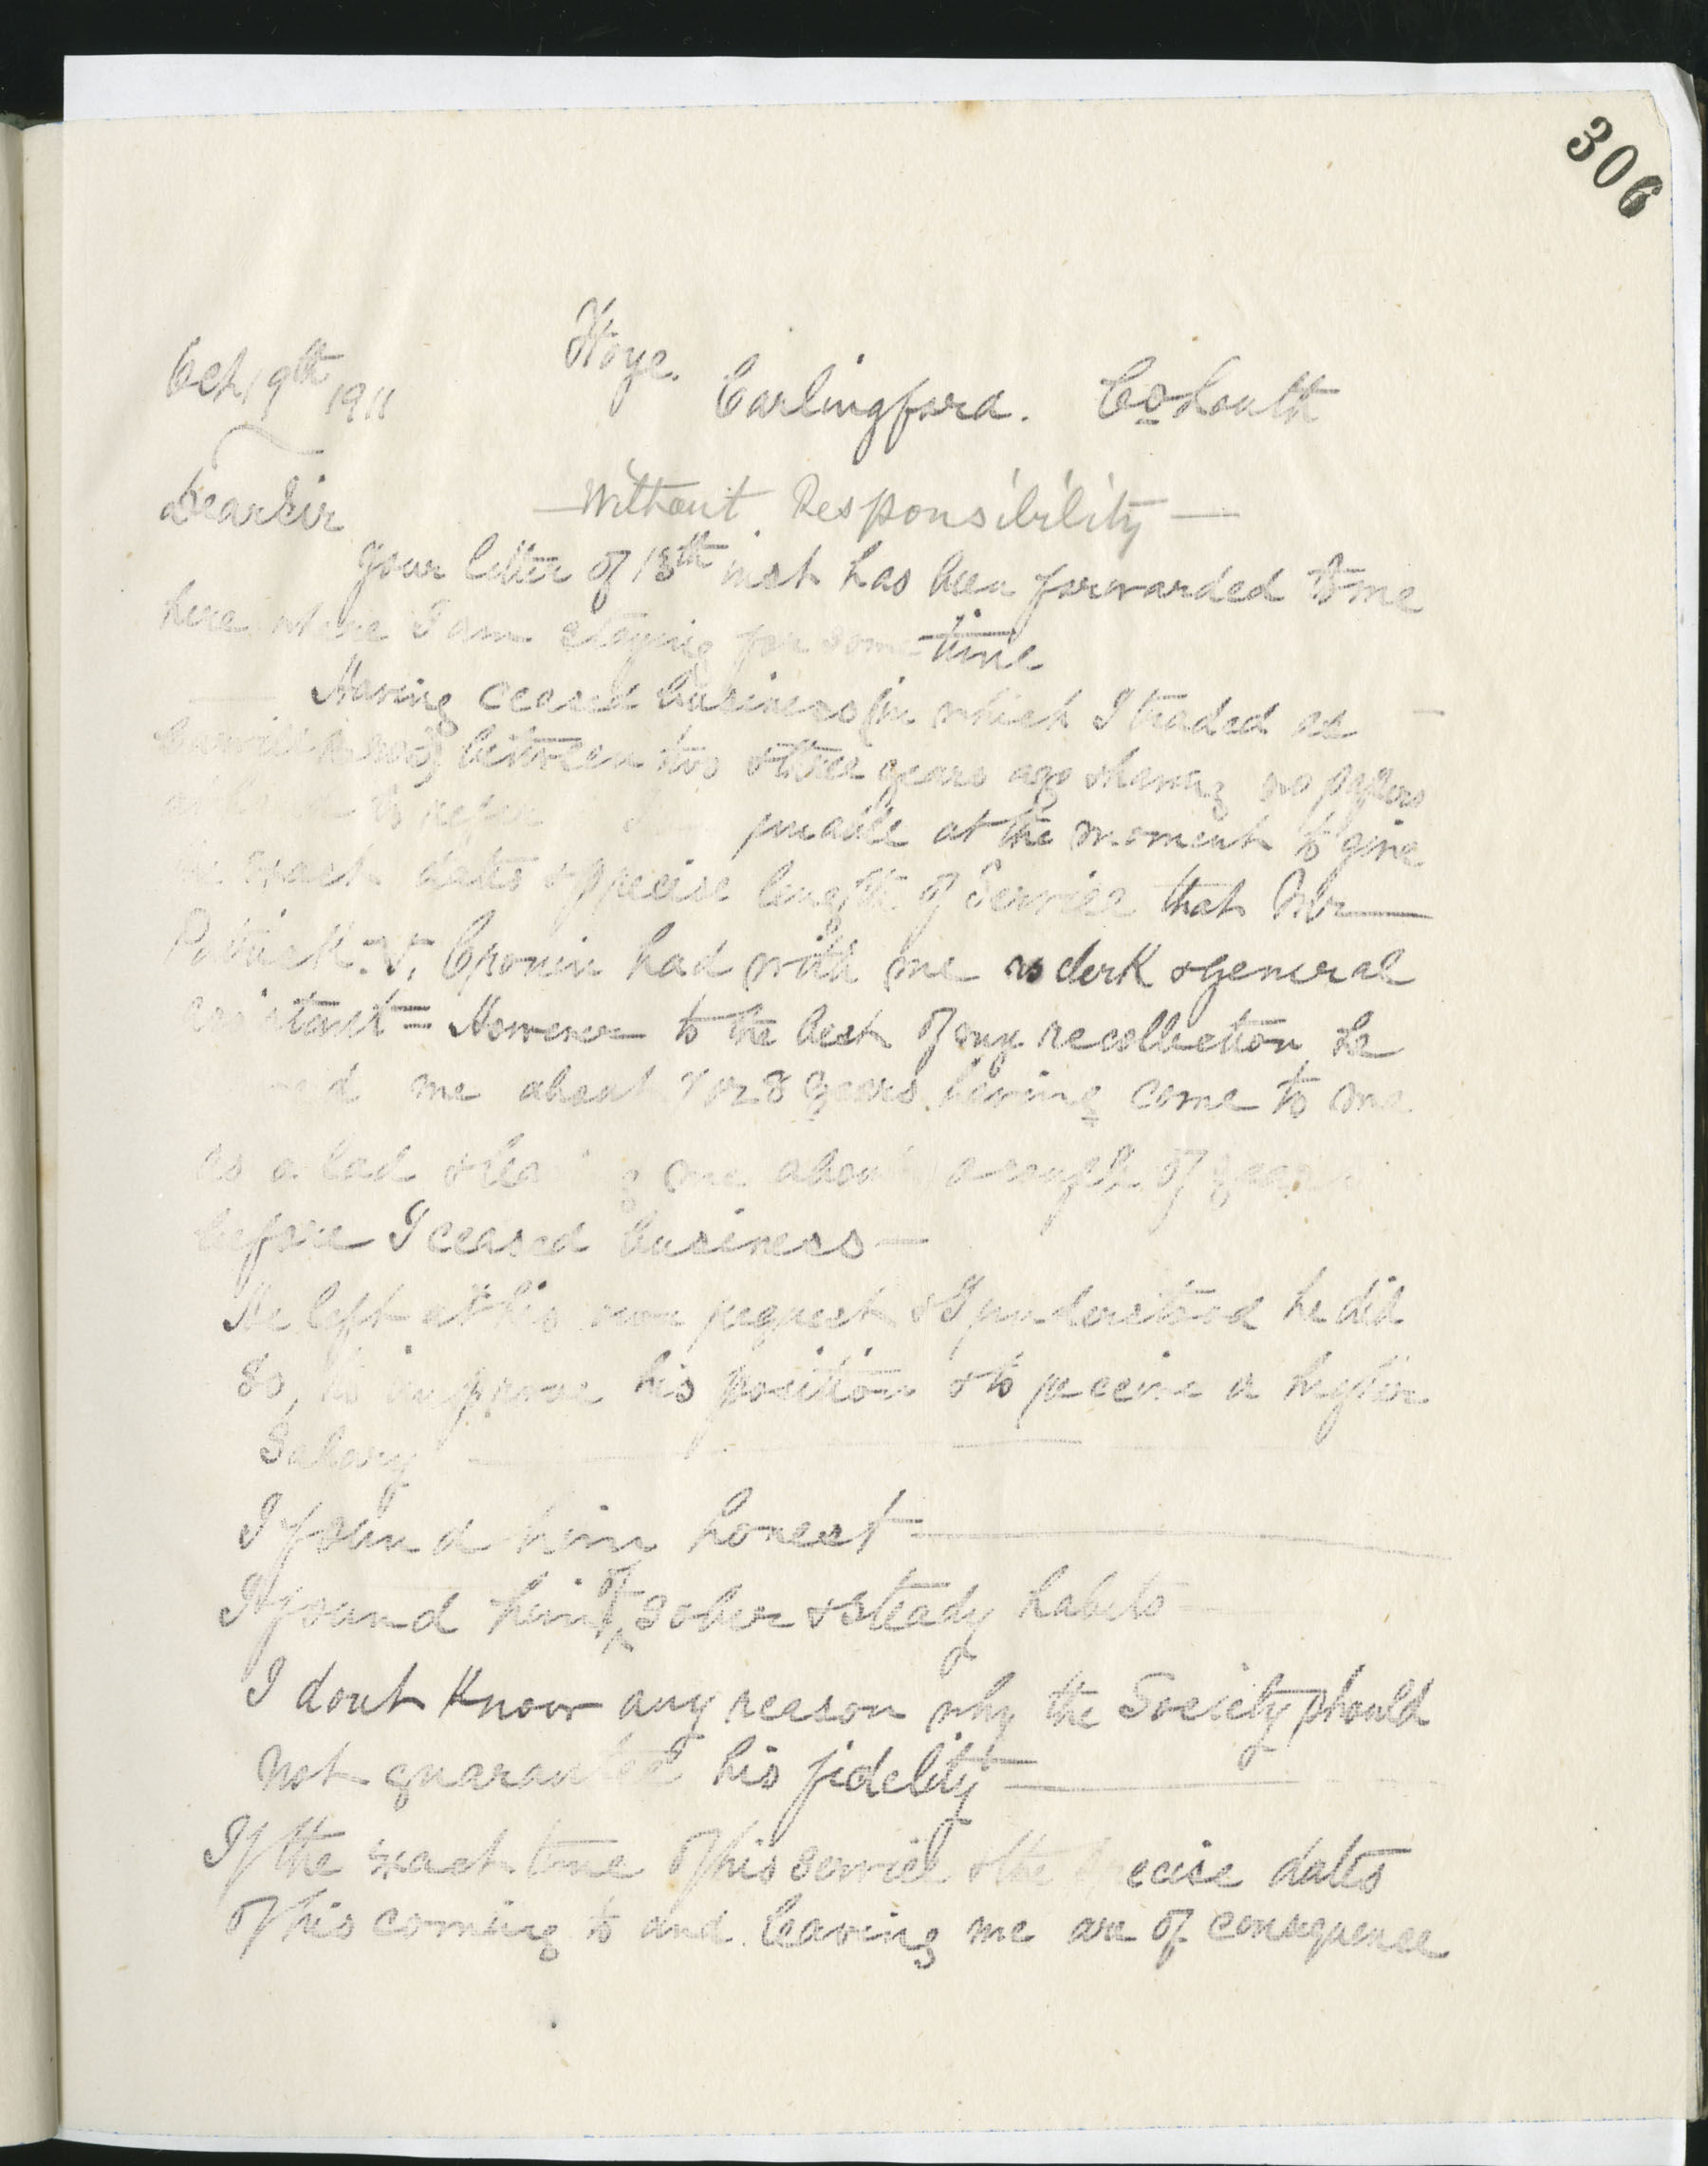 306
Hoye.
Oct 19th 1911
Carlingford. Co Louth
Dear Sir
— Without Responsibility —
Your letter of 18th inst has been forwarded to me
here where I am staying for some time
Having ceased business (in which I traded as
between two & three years ago & having no papers
to refer unable at the moment to give
exact dates & precise length of Service that Mr —
Patrick. V. Cronin had with me as clerk & general
assistant = However to the best of my recollection he
me about 7 or 8 years. having come to me
as a lad & leaving me about a couple of years
before I ceased business —
He left at his own request & I understood he did
so, to improve his position & to receive a higher
Salary
I found him honest —
I found him of sober & steady habits —
I dont know any reason why the Society should
not guarantee his fidelity —
If the exact time of his service & the precise dates
of his coming to and leaving me are of consequence